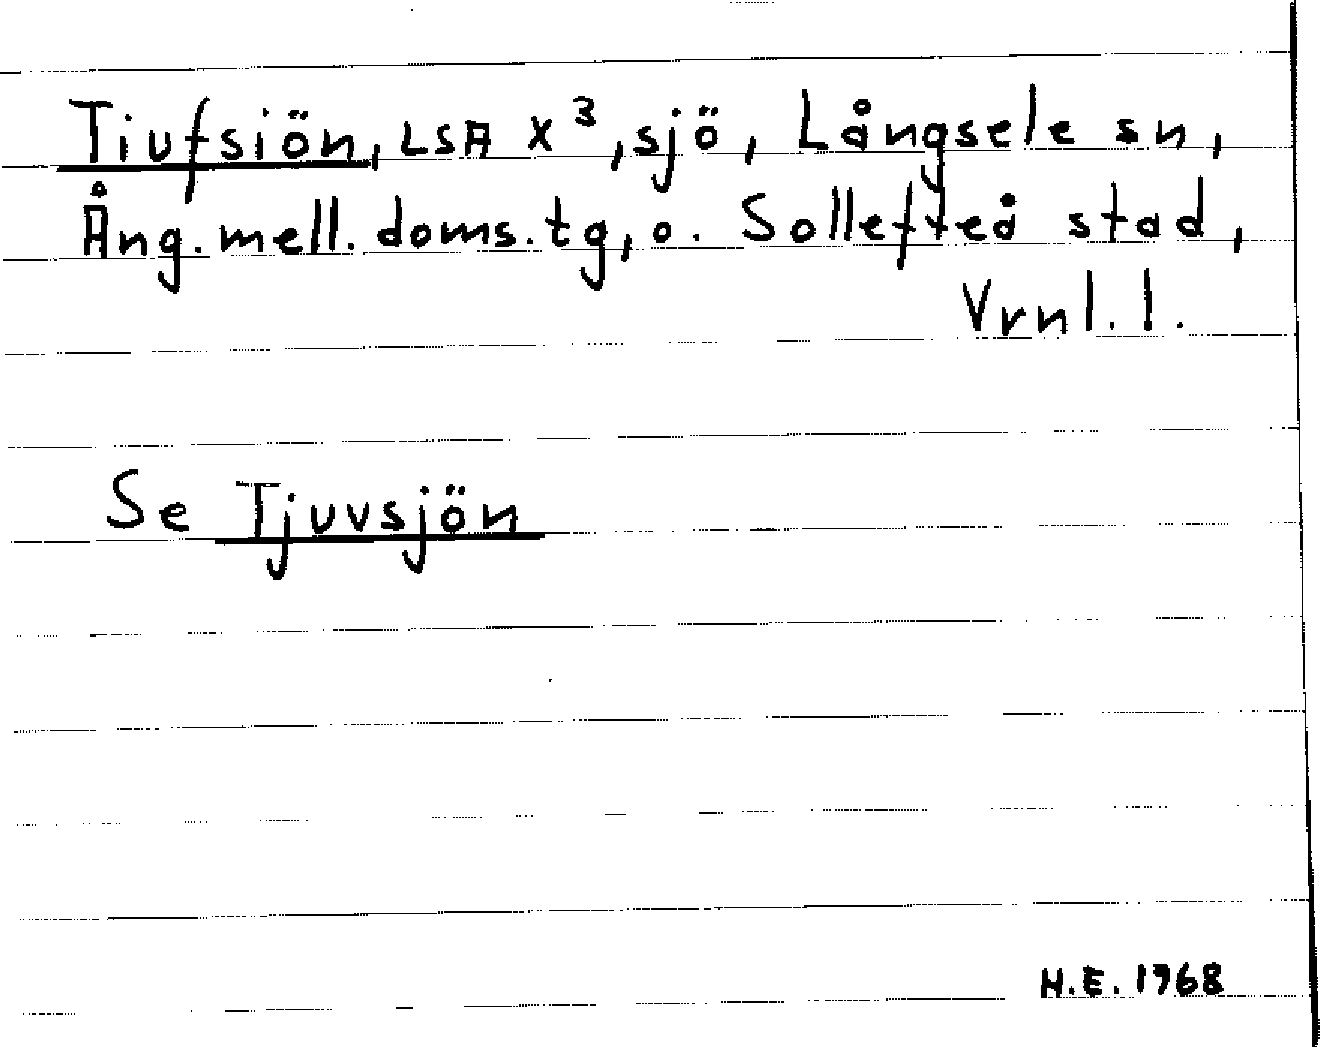 Tiufsiön, LSA X³, sjö, Långsele sn,
Ång. mell. doms. tg, o. Sollefteå stad,
Vrnl. l.
Se Tjuvsjön
H.E. 1968